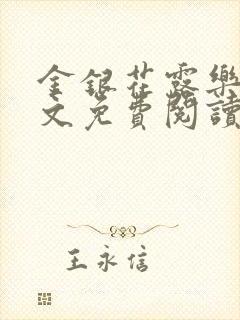 金銀花露樂
文免費閱讀
王永信